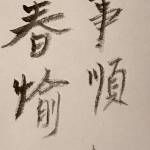 事順
春愉